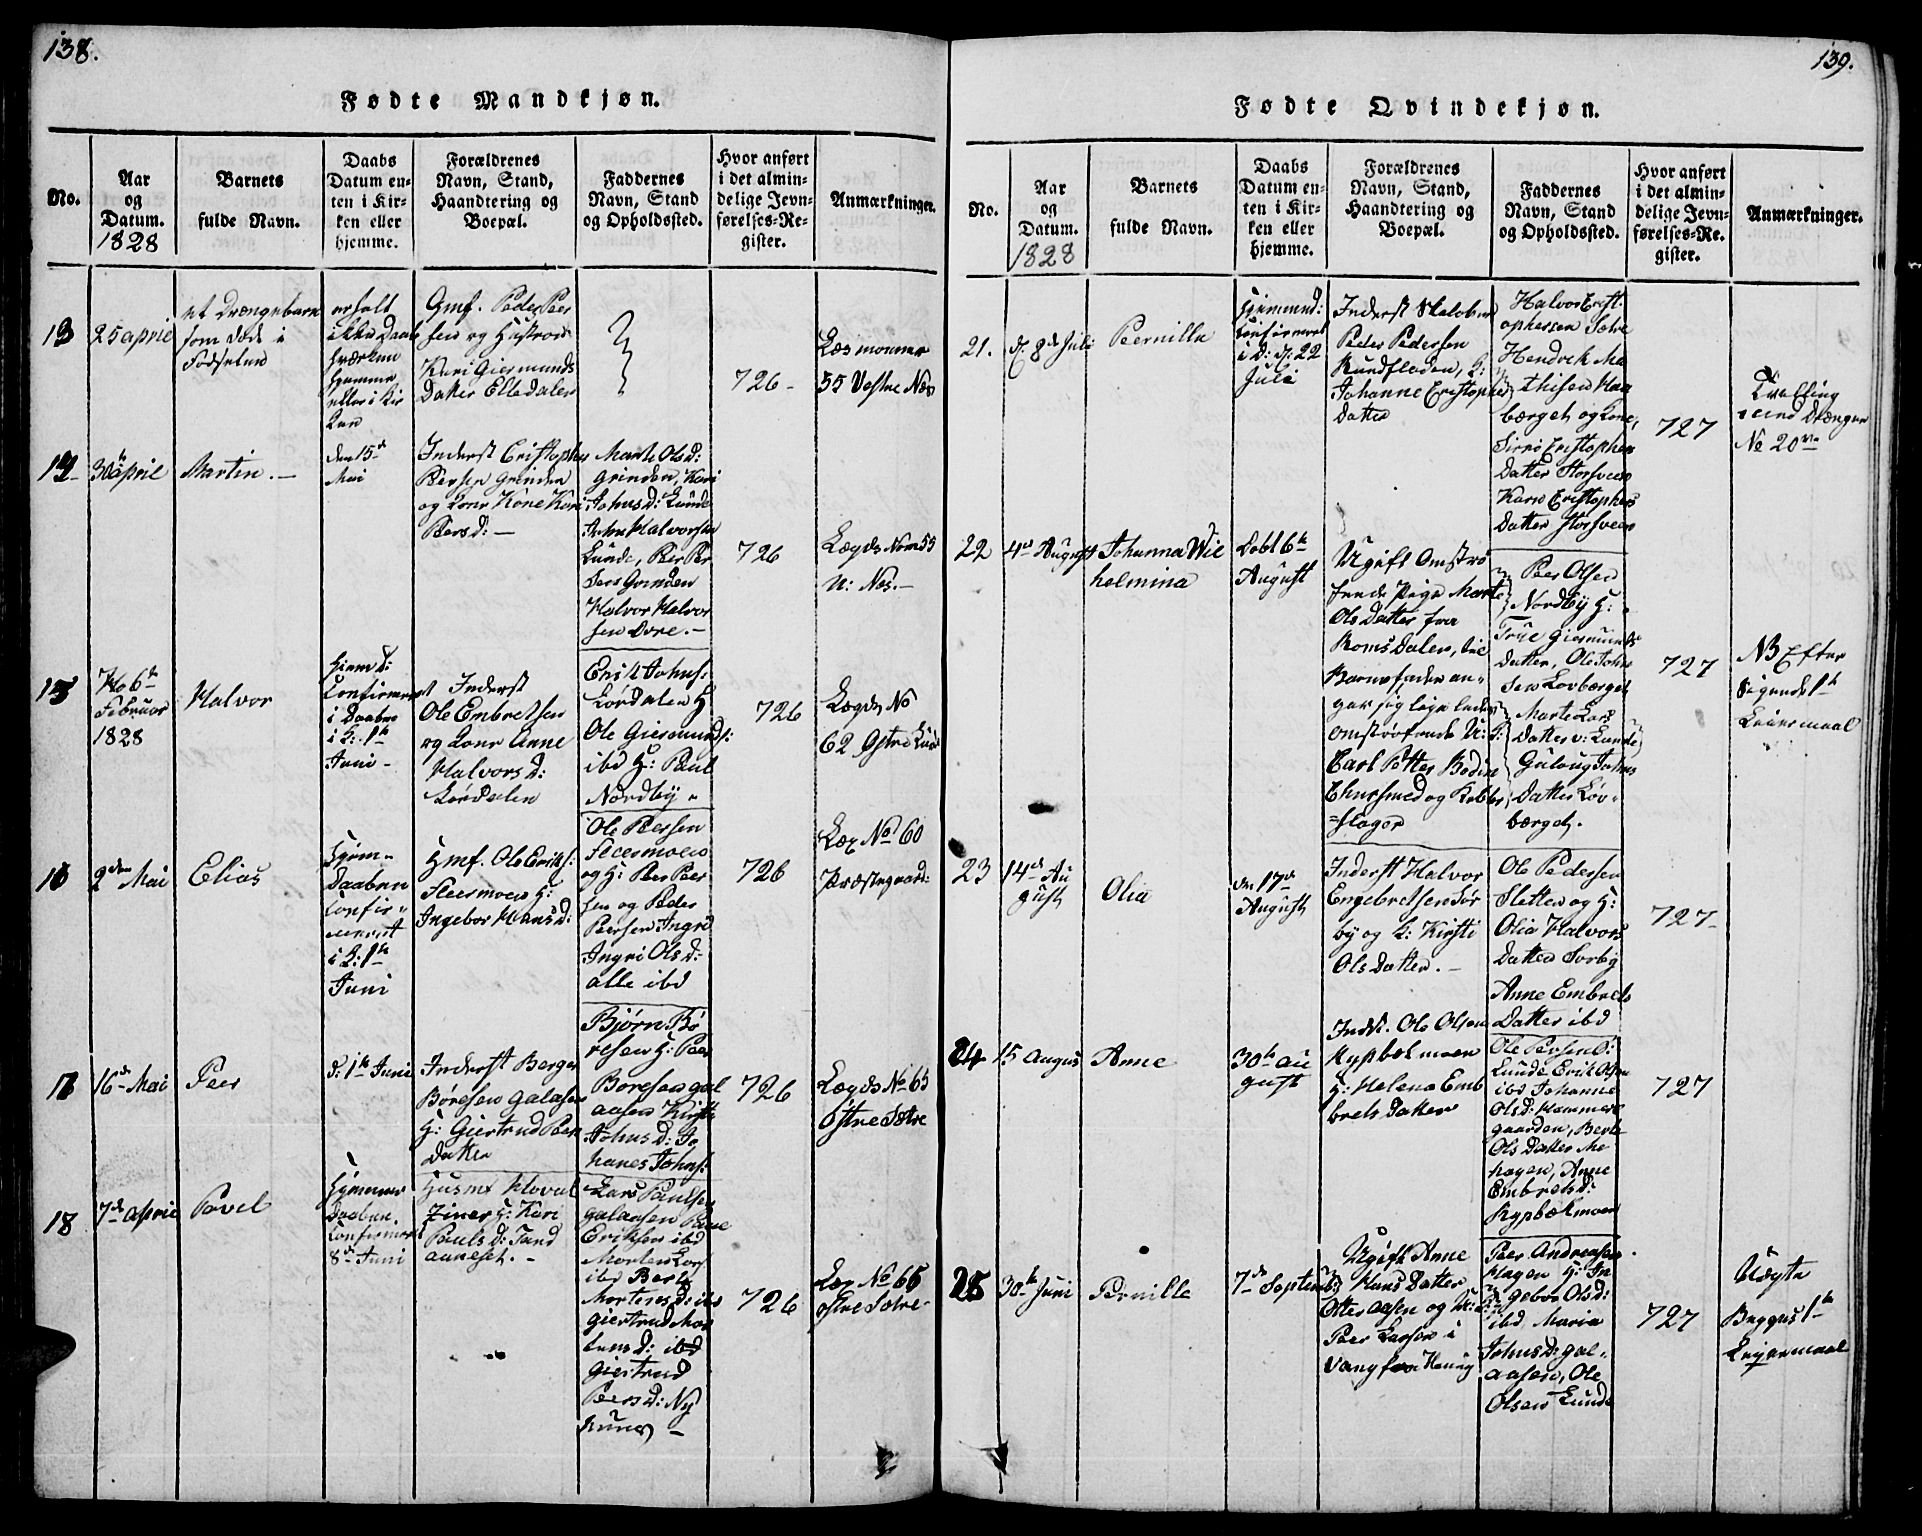 138.
Fødte Mandkjøn.
No.
Aar
og
Datum.
1828
Barnets
fulde Navn.
Daabs
Datum en-
ten i Kir-
ken eller
hjemme.
Forældrenes
Navn, Stand,
Haandtering og
Boepæl.
Faddernes
Navn, Stand
og Opholdssted.
Hvor anført
i det almin-
delige Jevn-
førelses-Re-
gister.
Anmærkninger.
13
25 april
et Drængebarn
som døde i
Fødselen
erholt
ikke Daab
hværken
hjemme
eller i Kir
ken
Gmf. Peder Peer
sen og Hustroe
Kari Giesmunds
Datter Elledalen
726-
55 Vestre Næs
14
30 april
Martin. -
den 15de
Mai
Inderst Cristopher
Persen Grinden
og Kone Kari
Persd: -
Marte Olsd:
Grinden, Kari
Johnsd: Lunde
John Halvorsen
Lunde, Peer Per
sen Grinden
Halvor Halvor
sen Dore. -
726
Lægds No 55
V: Næs. -
15
6te
Februar
1828
Halvor
Hiemd:
Confirmeret
i Daaben
i K: 1te
Juni -
Inderst
Ole Embretsen
og Kone Anne
Halvorsd:
Lørdalen
Erik Johns:
Lørdalen H
Ole Giesmunds:
ibd H: Paul
Nordby
726
Lægds No
62 Østre Lund
16
2den Mai
Elias
Hjem-
Daaben
Confir-
meret
i K: 1te
Juni
Hmf. Ole Eriks:
Fleesmoen H:
Ingebor Hansd:
Ole Persen
Fleesmoen
og H: Peer Peer
sen og Peder
Persen Ingrid
Ingri Olsd:
alle ibd
726
Læg No 60
Præstegaard:
17
16de Mai
Peer
d: 1te Juni
Inderst Berger
Børesen Galaasen
H: Giertrud Peers
Datter
Bjørn Bö
resen H: Peer
Boresen Gal
aasen Kirsti
Johnsd: Jo
hanes Johns:
726
Lægds No 65
Østre Sætre
18
7de april
Povel
Hjemme
Daaben
Confirmeret
8de Juni
Husmf
H: Kari
Paulsd: Tand
aaneset. -
Lars Paulsen
Galaasen
Eriksen ibd
Morten Lars
ibd Berte
Mortensd: ibd
Giertrud Mor
tensd: ibd
Giertrud
Peersd: Ny
-
726
Læg No 65
Østre Sætre-
139.
Fødte Qvindekjøn.
No.
Aar
og
Datum.
1828
Barnets
fulde Navn.
Daabs
Datum en-
ten i Kir-
ken eller
hjemme.
Forældrenes
Navn, Stand,
Haandtering og
Boepæl.
Faddernes
Navn, Stand
og Opholdssted.
Hvor anført
i det almin-
delige Jevn-
førelses-Re-
gister.
Anmærkninger.
21.
d. 8de Juli
Peernille
Hjemmed:
Confirmeret
i K: d: 22
Juli
Inderst
Peder Pedersen
Rundfloden, K:
Johanne Cristophers
Datter
Halvor Crist-
ophersen Sætre
Hendrek Ma
thisen Haa
bærget og Kone,
Sirri Cristophers
Datter Storsveen
Karen Cristophers
Datter Storsveen
727
Tvilling
med Drængen
No 20
22
4de August
Johanna Wil
helmina
Døbt 6te
August
Ugift Omstrø
fende Pige Marte
Ols Datter fra
Romsdalen, til
Barnefader an-
gav sig
omstrøfende
Carl Petter Bodin
Thursmed og Kobber
slager
Peer Olsen
Nordby H:
Giesmunds
Datter, Ole Johns
sen Lovbærget
Marte Lars
Datter V: Lunde
Gulaug Johns
Datter Løv-
bærget.
727
NB Efter
sigende 1te
Leiermaal
23
14de Au
gust
Olia
den 17de
August
Inderst Halvor
Engebretsen Sør
by og K: Kirsti
Ols Datter. -
Ole Pedersen
Sletten og H:
Olia Halvors
Datter Sorby
Anne Embrets
Datter ibd
727-
24
15 Augus
Anne
30te au
gust
Inds. Ole Olsen
Rypbækmoen
H: Helena Emb
brets Datter
Ole Persen Ø:
Lunde Erik Olsen
ibd Johanne
Olsd: Hammer
gaarden, Berte
Ols Datter Me
hagen, Anne
Embretsd:
Rypbækmoen
727
25
30te Juni
Pernille
7de September
Ugift Anne
Hans Datter
Østeraasen og U: K:
Peer Larsen i
Vang fra Hønsig
Peer Andreasen
Hagen H: In
gebor Olsd:
ibd Maria
Johnsd: Gal-
aasen, Ole
Olsen Lunde
727
Uægte
Begges 1te
Leyermaal